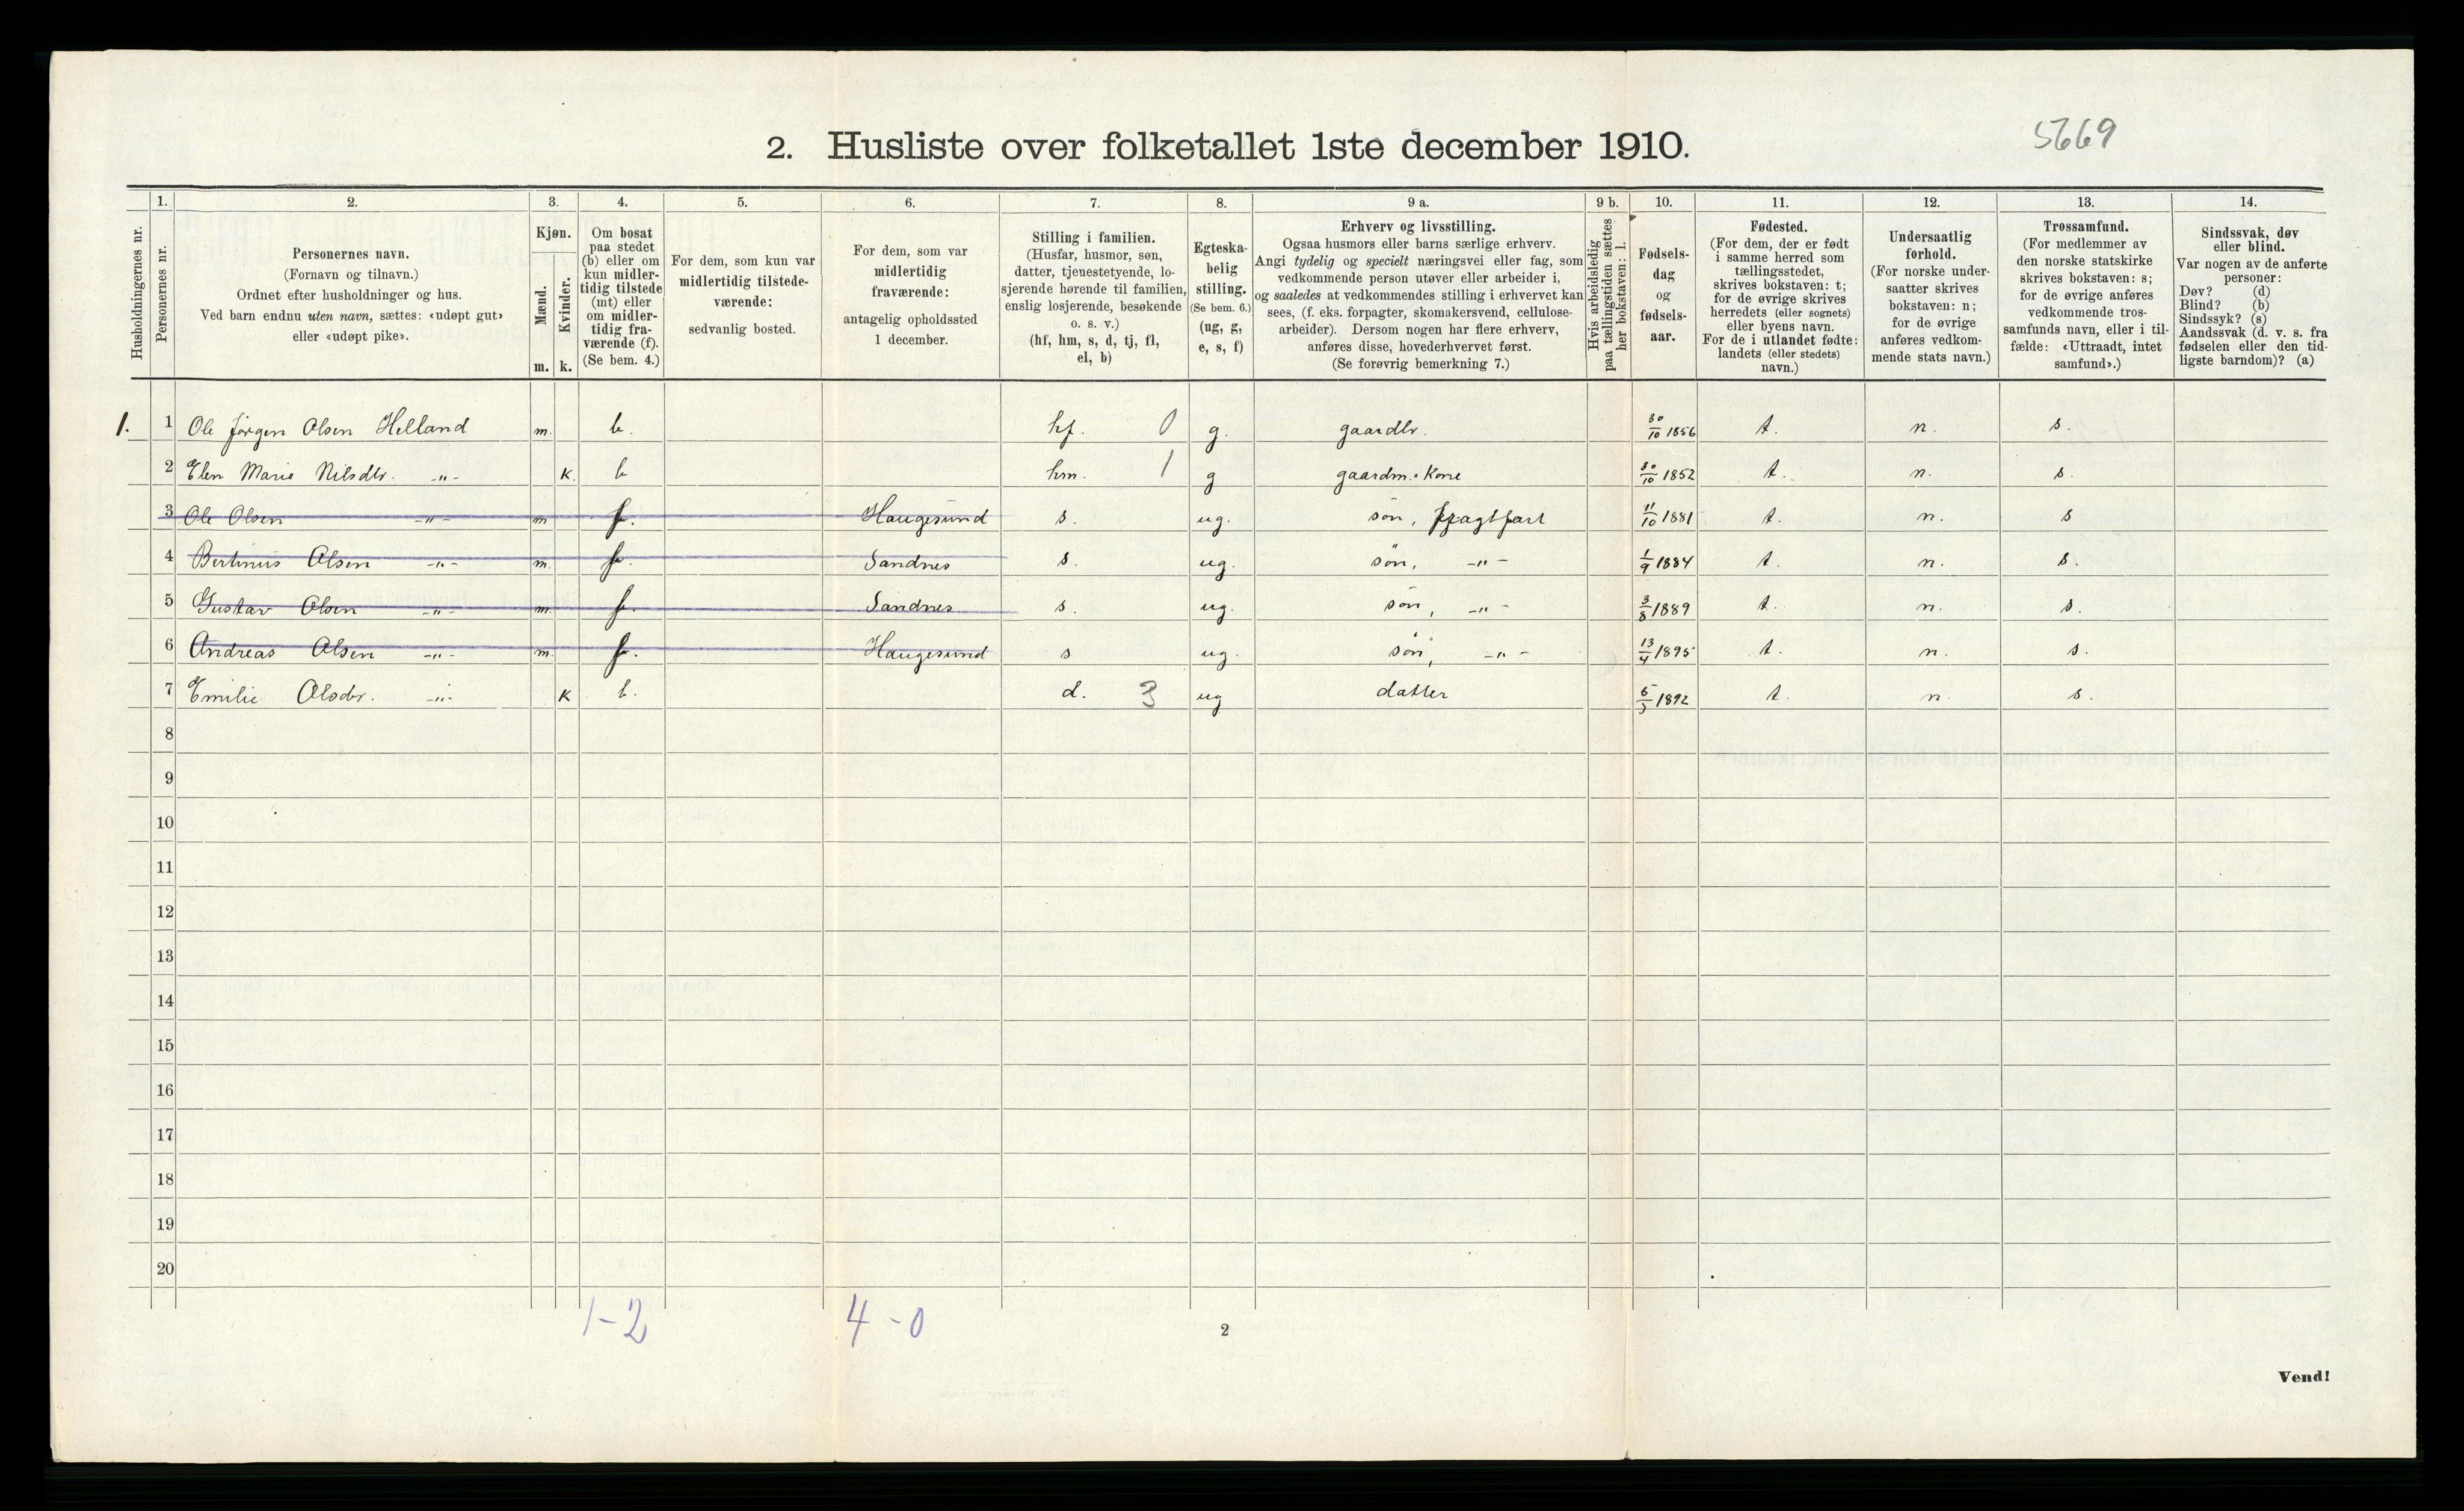 5669
2. Husliste over folketallet 1ste december 1910.
1. 2. 3. 4. 5. 6. 7. 8. 9 a. 9 b. 10. 11. 12. 13. 14.
Husholdningernes nr.
Personernes nr.
Personernes navn.
(Fornavn og tilnavn.)
Ordnet efter husholdninger og hus.
Ved barn endnu uten navn, sættes: «udøpt gut»
eller «udøpt pike».
Kjøn.
Mænd.
Kvinder.
m. k.
Om bosat
paa stedet
(b) eller om
kun midler-
tidig tilstede
(mt) eller
om midler-
tidig fra-
værende (f).
(Se bem. 4.)
For dem, som kun var
midlertidig tilstede-
værende:
sedvanlig bosted.
For dem, som var
midlertidig
fraværende:
antagelig opholdssted
1 december.
Stilling i familien.
(Husfar, husmor, søn,
datter, tjenestetyende, lo-
sjerende hørende til familien,
enslig losjerende, besøkende
o. s. v.)
(hf, hm, s, d, tj, fl,
el, b)
Egteska-
belig
stilling.
(Se bem. 6.)
(ug, g,
e, s, f)
Erhverv og livsstilling.
Ogsaa husmors eller barns særlige erhverv.
Angi tydelig og specielt næringsvei eller fag, som
vedkommende person utøver eller arbeider i,
og saaledes at vedkommendes stilling i erhvervet kan
sees, (f. eks. forpagter, skomakersvend, cellulose-
arbeider). Dersom nogen har flere erhverv,
anføres disse, hovederhvervet først.
(Se forøvrig bemerkning 7.)
Hvis arbeidsledig
paa tællingstiden sættes
her bokstaven: l.
Fødsels-
dag
og
fødsels-
aar.
Fødested.
(For dem, der er født
i samme herred som
tællingsstedet,
skrives bokstaven: t;
for de øvrige skrives
herredets (eller sognets)
eller byens navn.
For de i utlandet fødte:
landets (eller stedets)
navn.)
Undersaatlig
forhold.
(For norske under-
saatter skrives
bokstaven: n;
for de øvrige
anføres vedkom-
mende stats navn.)
Trossamfund.
(For medlemmer av
den norske statskirke
skrives bokstaven: s;
for de øvrige anføres
vedkommende tros-
samfunds navn, eller i til-
fælde: «Uttraadt, intet
samfund».)
Sindssvak, døv
eller blind.
Var nogen av de anførte
personer:
Døv? (d)
Blind? (b)
Sindssyk? (s)
Aandssvak (d. v. s. fra
fødselen eller den tid-
ligste barndom)? (a)
1. 1 Ole Jørgen Olsen Helland m. b. hf. 0 g. gaardbr. 30/10 1856 t. n. s.
2 Elen Marie Nilsdtr. -"- k. b hm. 1 g gaardm.-kone 30/10 1852 t. n. s.
3 Ole Olsen -"- m f. Haugesund s. ug. søn, fragtfart 11/10 1881 t. n. s
4 Bertinius Olsen -"- m. f. Sandnes s. ug. søn, -"- 1/9 1884 t. n. s.
5 Gustav Olsen -"- m. f. Sandnes s. ug. søn, -"- 3/8 1889 t. n. s.
6 Andreas Olsen -"- m. f. Haugesund s ug. søn, -"- 13/4 1895 t. n. s.
7 Emilie Olsdtr. -"- k b. d. 3 ug datter 1892 t. n. s.
8
9
10
11
12
13
14
15
16
17
18
19
20
1-2 4-0
2
Vend!